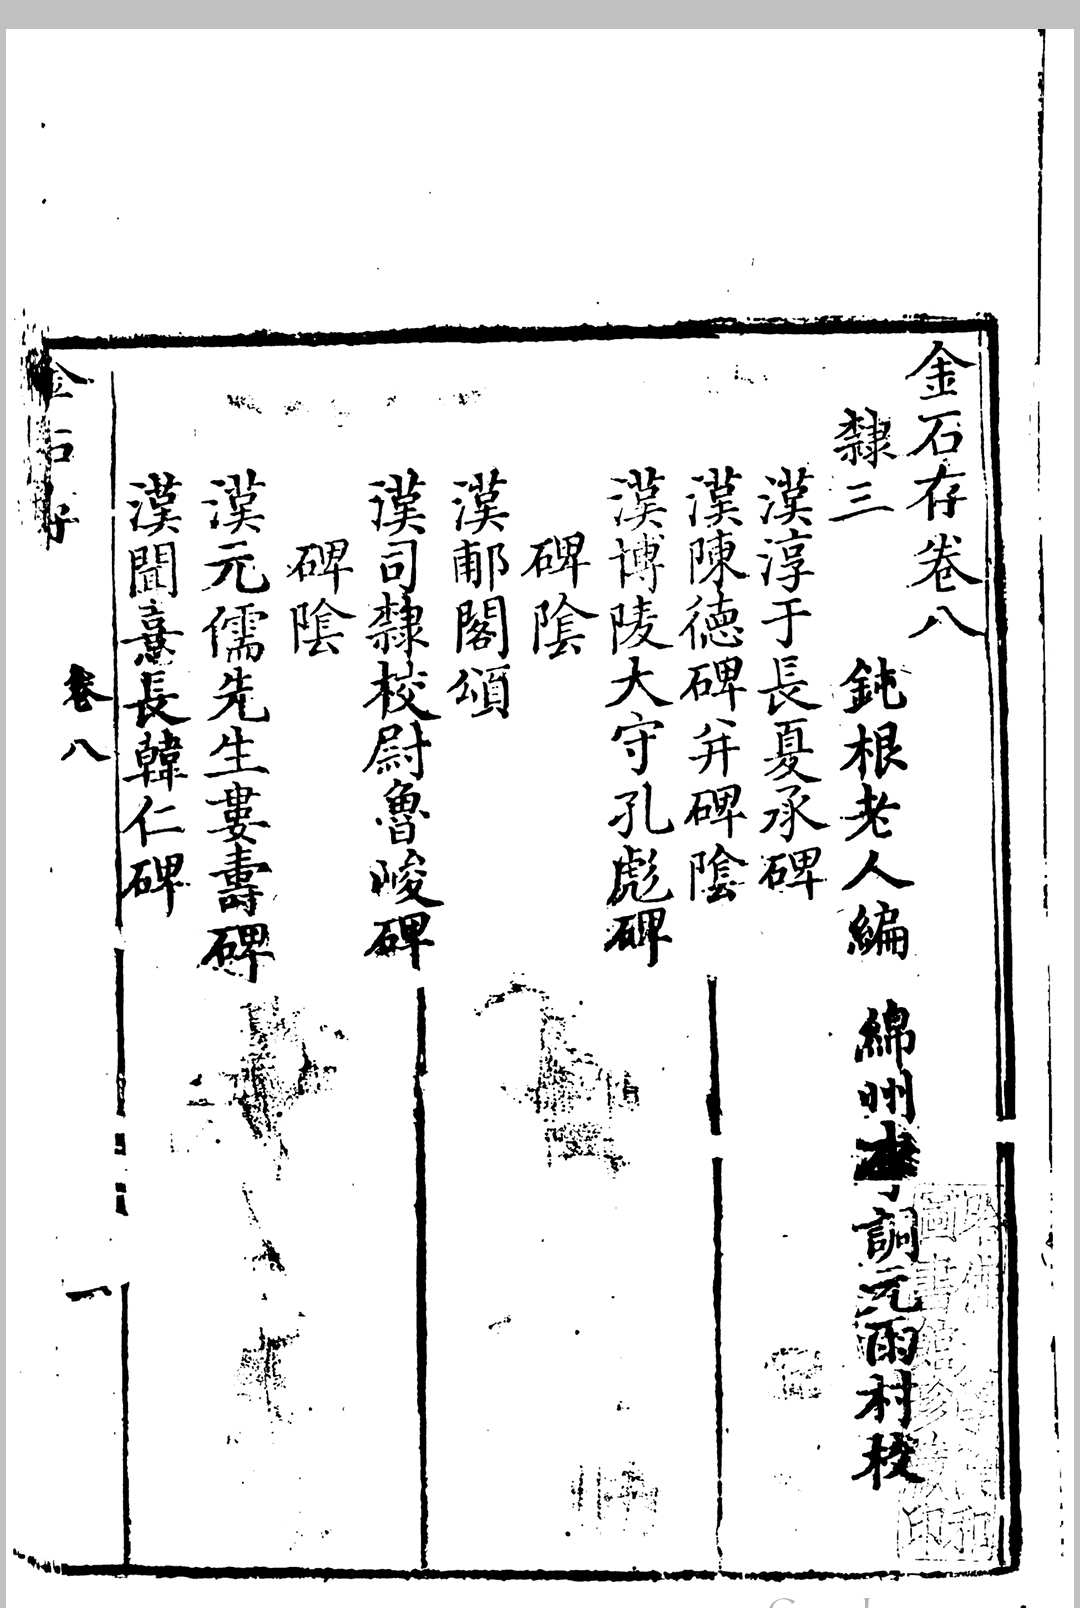 金石存卷八
隸三
鈍根老人編 綿州李調元雨村校
漢淳于長夏承碑
漢陳德碑并碑陰
漢博陵太守孔彪碑
碑陰
漢郙閣頌
漢司隸校尉魯峻碑
碑陰
漢元儒先生婁壽碑
漢聞憙長韓仁碑
金石存
卷八
一